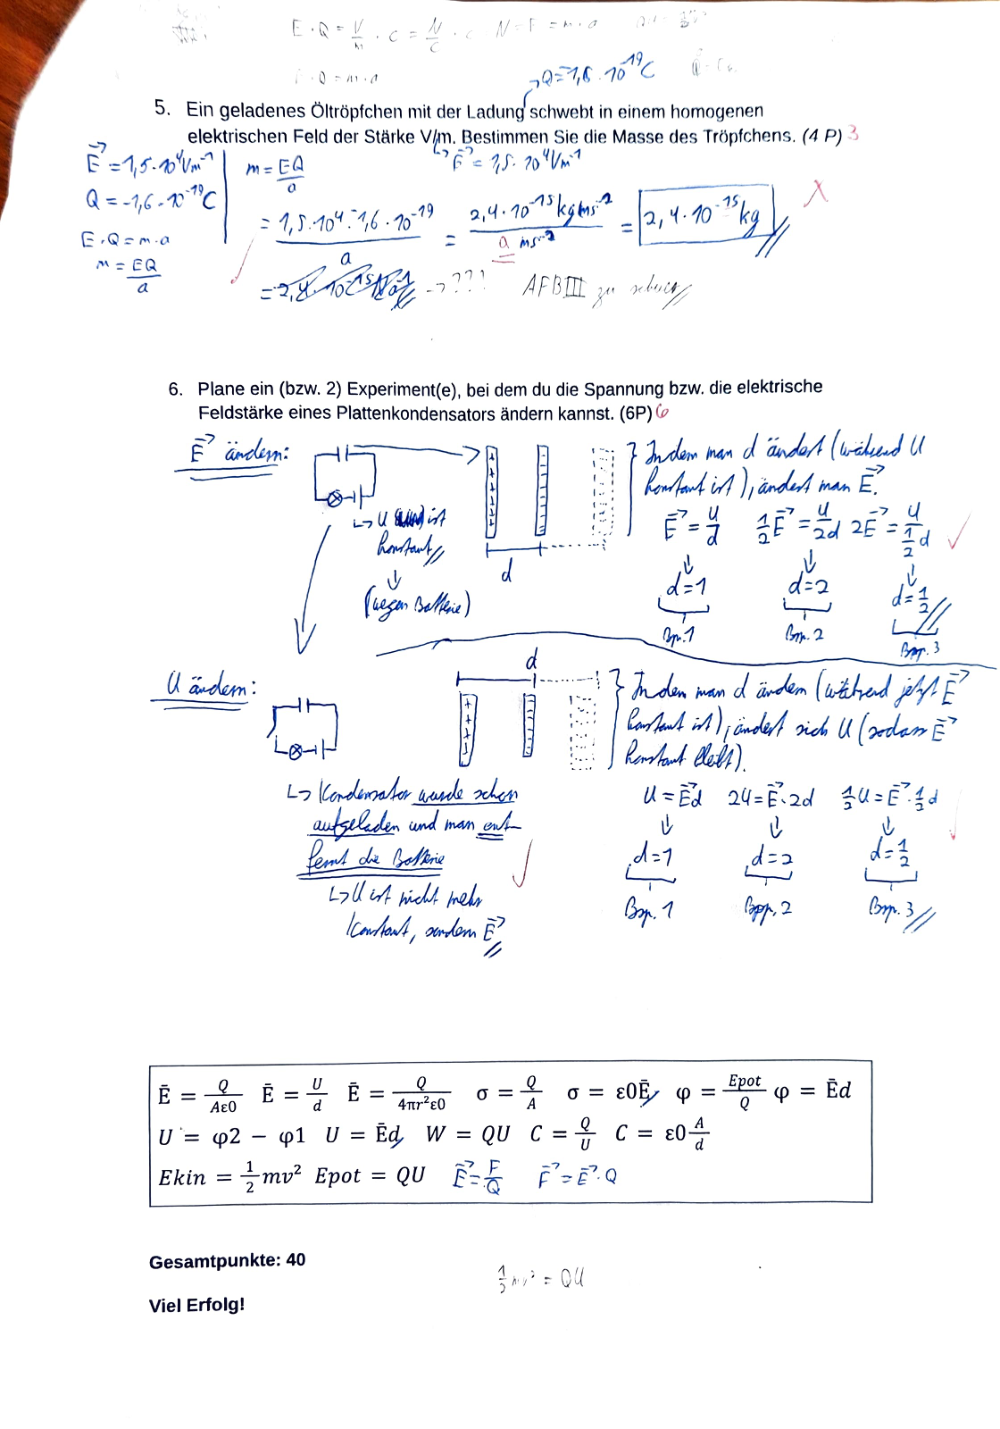 E · Q = V/m · C = N/C · C   N = F = m · a
E · Q = m · a
→ Q = 1,6 · 10⁻¹⁹ C
5. Ein geladenes Öltröpfchen mit der Ladung schwebt in einem homogenen
elektrischen Feld der Stärke V/m. Bestimmen Sie die Masse des Tröpfchens. (4 P) 3
↳ E⃗ = 1,5 · 10⁴ Vm⁻¹
E⃗ = 1,5 · 10⁴ Vm⁻¹
Q = -1,6 · 10⁻¹⁹ C
E · Q = m · a
m = EQ/a
m = EQ/a
= 1,5 · 10⁴ · -1,6 · 10⁻¹⁹ / a = 2,4 · 10⁻¹⁵ kg ms⁻² / a ms⁻² = 2,4 · 10⁻¹⁵ kg
= -2,4 · 10⁻¹⁵ → ??? AFB III zu
6. Plane ein (bzw. 2) Experiment(e), bei dem du die Spannung bzw. die elektrische
Feldstärke eines Plattenkondensators ändern kannst. (6P) 6
E⃗ ändern:
↳ U ist
konstant
↓
(wegen Batterie)
d
} Indem man d ändert (während U
konstant ist), ändert man E⃗.
E⃗ = U/d   ½E⃗ = U/2d   2E⃗ = U/½d
d=1   d=2   d=½
Bsp. 1   Bsp. 2   Bsp. 3
U ändern:
d
} Indem man d ändern (während jetzt E⃗
konstant ist), ändert sich U (sodass E⃗
konstant bleibt).
↳ Kondensator wurde schon
aufgeladen und man ent-
fernt die Batterie
↳ U ist nicht mehr
konstant, sondern E⃗
U = E⃗d   2U = E⃗ · 2d   ½U = E⃗ · ½d
d=1   d=2   d=½
Bsp. 1   Bsp. 2   Bsp. 3
Ē = Q/Aε0   Ē = U/d   Ē = Q/4πr²ε0   σ = Q/A   σ = ε0Ē   φ = Epot/Q   φ = Ēd
U = φ2 − φ1   U = Ēd   W = QU   C = Q/U   C = ε0 A/d
Ekin = ½mv²   Epot = QU   E⃗ = F/Q   F⃗ = E⃗ · Q
Gesamtpunkte: 40
½mv² = QU
Viel Erfolg!